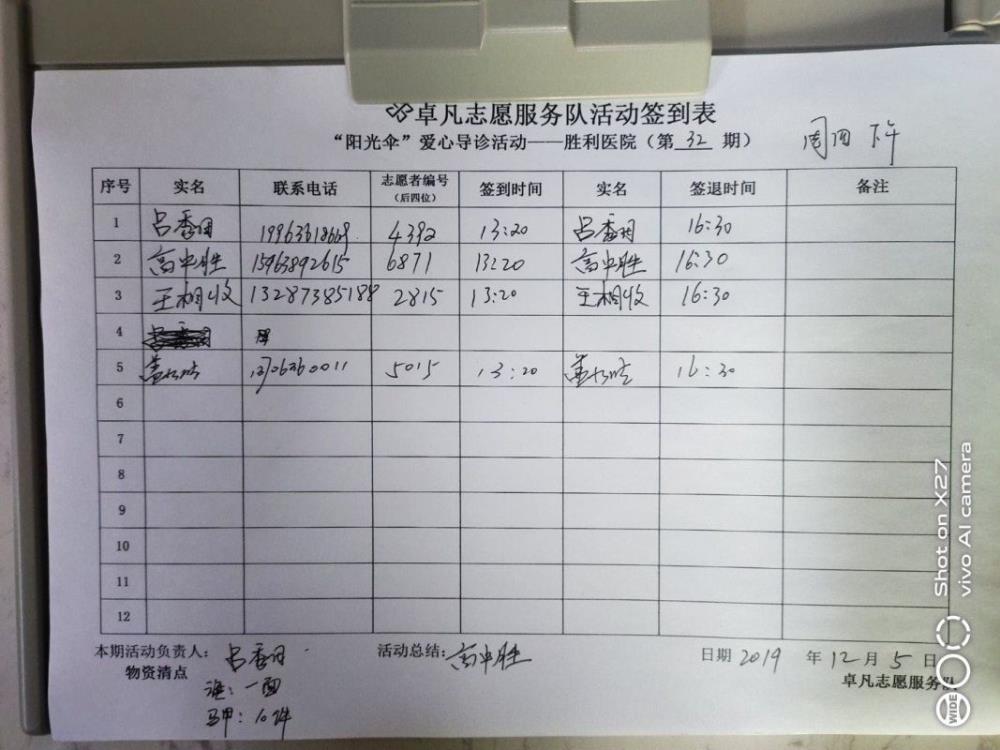 卓凡志愿服务队活动签到表
“阳光伞”爱心导诊活动——胜利医院（第 32 期） 周四 下午
序号 实名 联系电话 志愿者编号（后四位） 签到时间 实名 签退时间 备注
1 吕香月 19963618669 4392 13:20 吕香月 16:30
2 高中胜 15963892615 6871 13:20 高中胜 16:30
3 王相收 13287385188 2815 13:20 王相收 16:30
4
5 5015 13:20 16:30
6
7
8
9
10
11
12
本期活动负责人： 吕香月 活动总结： 高中胜 日期 2019 年 12 月 5 日
物资清点 卓凡志愿服务队
旗：一面
马甲：10件
Shot on X27
vivo AI camera
WIDE